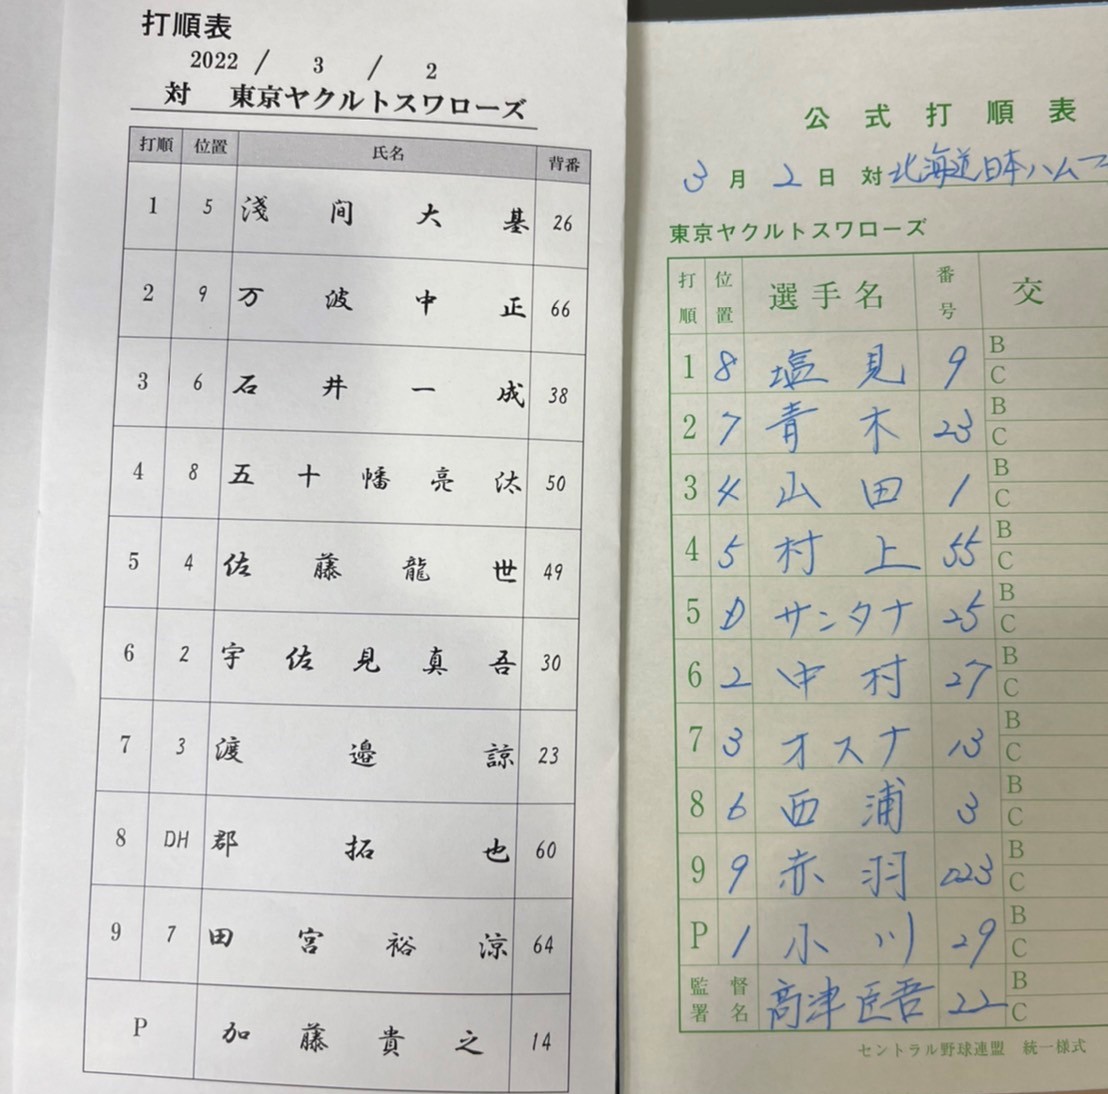 打順表
2022 / 3 / 2
対 東京ヤクルトスワローズ
打順 位置 氏名 背番
1 5 淺間大基 26
2 9 万波中正 66
3 6 石井一成 38
4 8 五十幡亮汰 50
5 4 佐藤龍世 49
6 2 宇佐見真吾 30
7 3 渡邉諒 23
8 DH 郡拓也 60
9 7 田宮裕涼 64
P 加藤貴之 14
公式打順表
3月2日 対 北海道日本ハムフ
東京ヤクルトスワローズ
打順 位置 選手名 番号 交
1 8 塩見 9 B C
2 7 青木 23 B C
3 4 山田 1 B C
4 5 村上 55 B C
5 D サンタナ 25 B C
6 2 中村 27 B C
7 3 オスナ 13 B C
8 6 西浦 3 B C
9 9 赤羽 023 B C
P 1 小川 29 B C
監督署名 高津臣吾 22 B C
セントラル野球連盟 統一様式